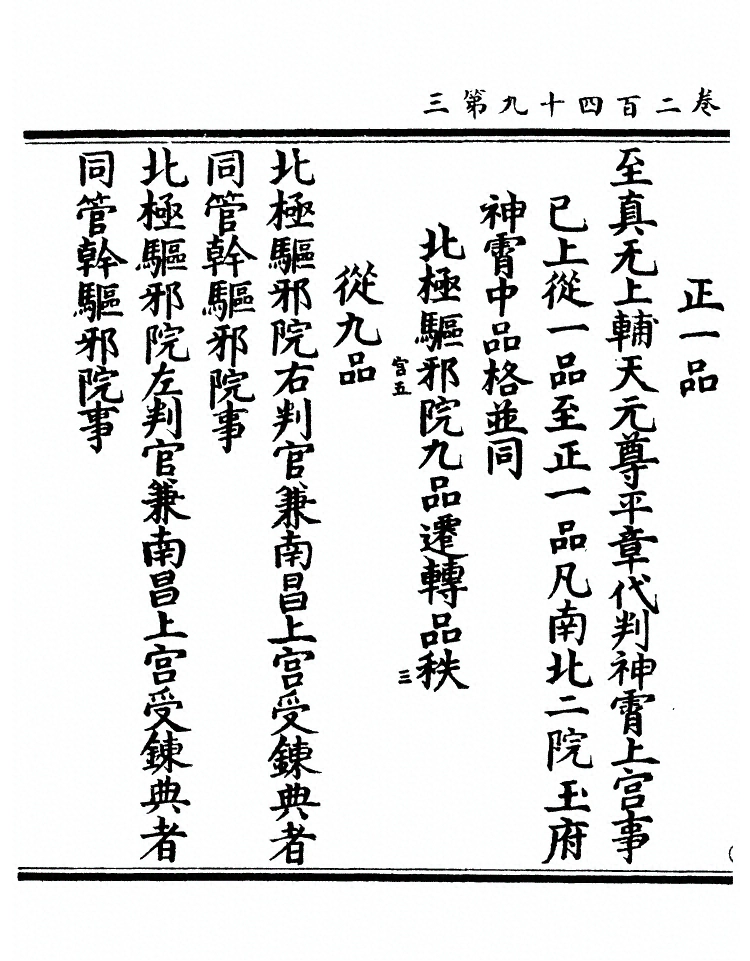 卷二百四十九第三
正一品
至真无上輔天元尊平章代判神霄上宫事
已上從一品至正一品凡南北二院玉府
神霄中品格並同
北極驅邪院九品遷轉品秩
宫五
三
從九品
北極驅邪院右判官兼南昌上宫受鍊典者
同管幹驅邪院事
北極驅邪院左判官兼南昌上宫受鍊典者
同管幹驅邪院事